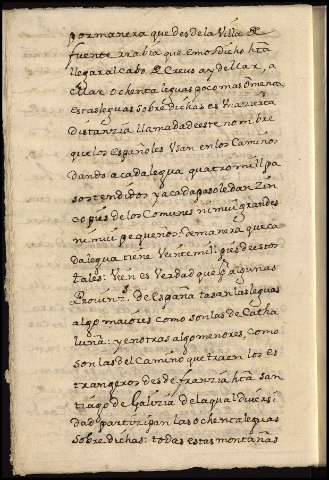 por manera que desde la Villa de
fuente rrabia que emos dicho hta
llegar al Cabo de Creus ay de llar, a
ellar ochenta leguas poco mas o menos
estas leguas sobre dichas es Vna çierta
distanzia llamada de este nombre
que los españoles Vsan en los Caminos
dando a cada legua quatro mill pa
sos tendidos y a cada paso le dan Zin
co pies de los Comunes ni mui grandes
ni mui pequeños: De manera que ca
da legua tiene Veinte mill pies destos
tales: Vien es Verdad que algunas
Prouinzs. de España tasan las leguas
algo maiores como son las de Catha
luña: y en otras algo menores, como
son las del Camino que traen los es
trangeros desde franzia hta san
tiago de Galizia de la qual diuersi
dad partizipan las ochenta leguas
sobre dichas: todas estas montañas